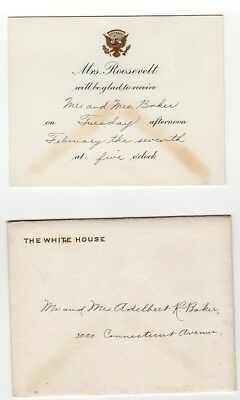 Mrs. Roosevelt
will be glad to receive
Mr and Mrs. Baker
on Tuesday afternoon
February the seventh
at five o'clock
THE WHITE HOUSE
Mr and Mrs. Adelbert R. Baker,
3000 Connecticut Avenue.